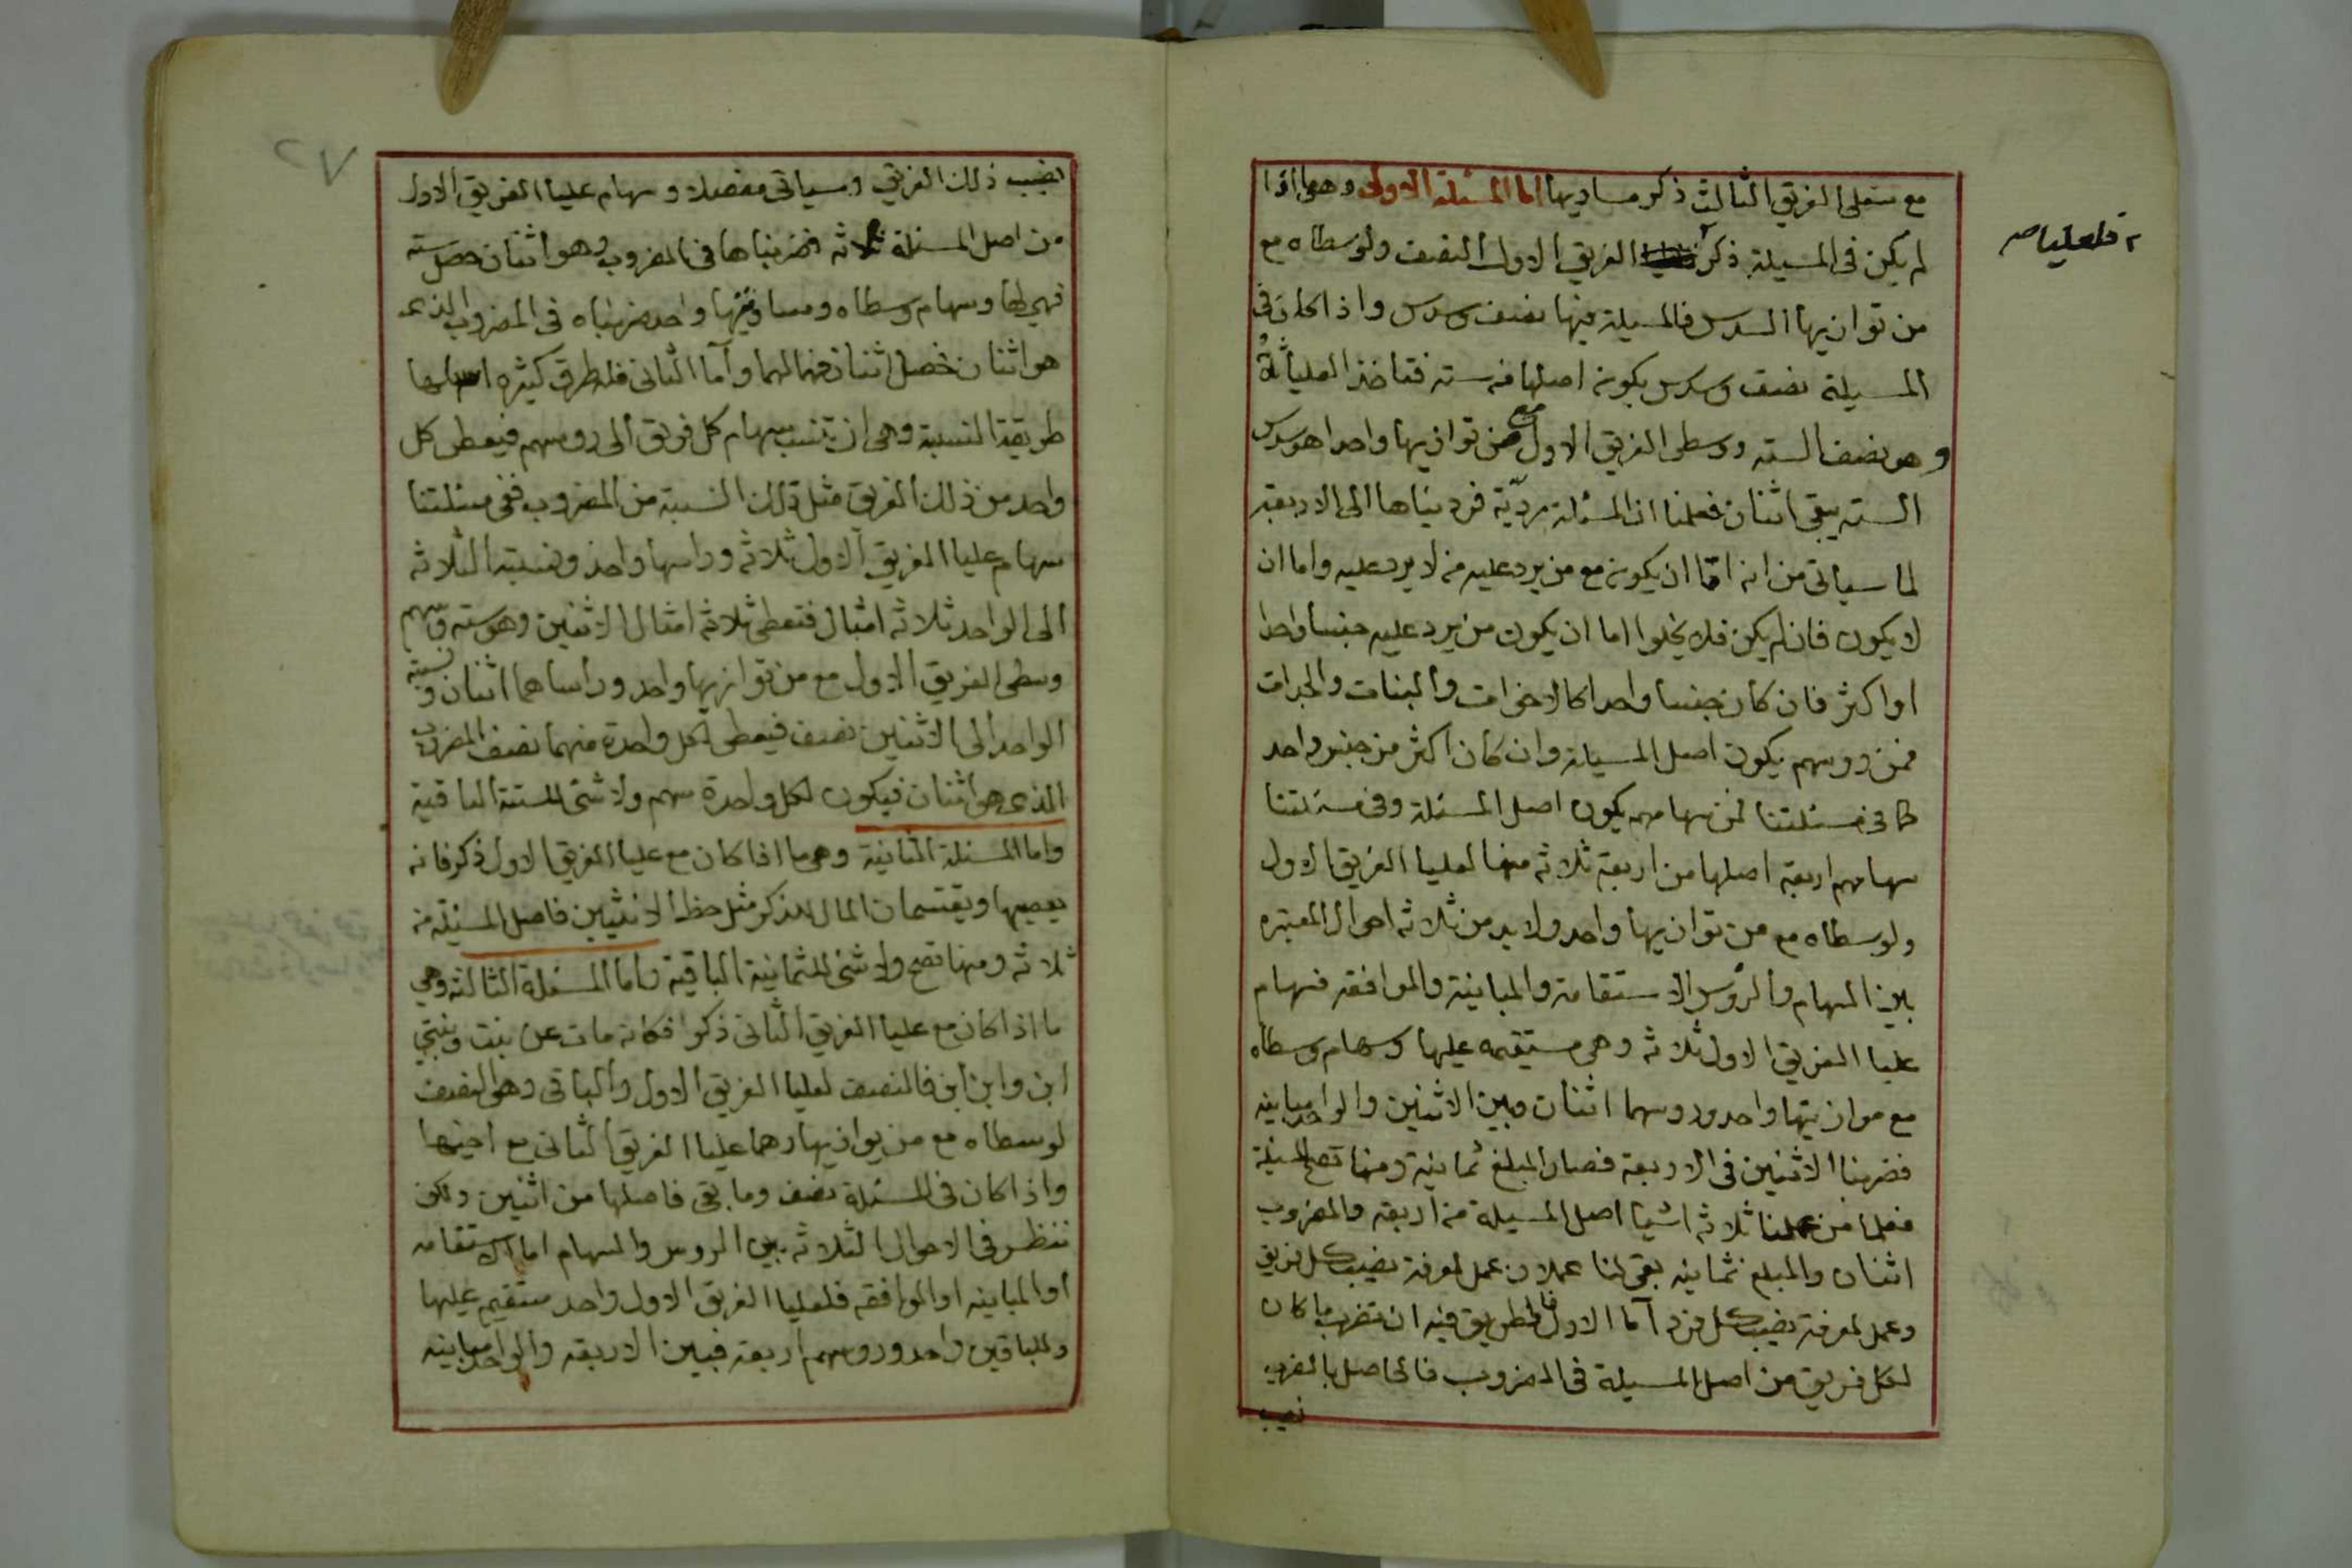 مع سفلى الفريق الثالث ذكر مساويها اما المسئلة الاولى وهي ما اذا
لم يكن في المسيلة ذكر الفريق الاول النصف ولوسطاه مع
فلعليا صح
من توازيها السدس فالمسيلة فيها نصف وسدس واذا كان في
المسيلة نصف وسدس يكون اصلها من ستة فتاخذ العليا ثلاثة
وهو نصف الستة ووسطى الفريق الاول مع من توازيها واحدا هو سدس
الستة يبقى اثنان فعلمنا ان المسئلة ردّية فرديناها الى الاربعة
لما سياتي من انه امّا ان يكون مع من يرد عليه من لا يرد عليه واما ان
لا يكون فان لم يكن فلا يخلوا اما ان يكون من يرد عليه جنسا واحدا
او اكثر فان كان جنسا واحدا كالاخوات والبنات والجدات
فمن رووسهم يكون اصل المسيلة وان كان اكثر من جنس واحد
كما في مسئلتنا فمن سهامهم يكون اصل المسئلة وفي مسئلتنا
سهامهم اربعة اصلها من اربعة ثلاثة منها لعليا الفريق الاول
ولوسطاه مع من توازيها واحد ولابد من ثلاثة احوال المعتبره
بين السهام والروس الاستقامة والمباينة والموافقه فسهام
عليا الفريق الاول ثلاثة وهي مستقيمه عليها وسهام وسطاه
مع موازيتها واحد وروسهما اثنان وبين الاثنين والواحد مباينه
فضربنا الاثنين في الاربعة فصار المبلغ ثمانية ومنها تصح المسيلة
فعلما من عملنا ثلاثة اشيا اصل المسيلة من اربعة والمضروب
اثنان والمبلغ ثمانيه بقي لنا عملان عمل لمعرفة نصيب كل فريق
وعمل لمعرفة نصيب كل فرد اما الاول فالطريق فيه ان تضرب ما كان
لكل فريق من اصل المسيلة في المضروب فالحاصل بالضرب
نصيب
٢٧
نصيب ذلك الفريق وسياتي مفصلا وسهام عليا الفريق الاول
من اصل المسئلة ثلاثه فضربناها في المضروب وهو اثنان حصل ستة
فهي لها وسهام وسطاه ومساويتها واحد ضربناه في المضروب الذي
هو اثنان فحصل اثنان فهما لهما وأما الثاني فله طرق كثيره اسهلها
طريقة النسبة وهي ان تنسب سهام كل فريق الى روسهم فيعطى كل
واحد من ذلك الفريق مثل تلك النسبة من المضروب ففي مسئلتنا
سهام عليا الفريق الاول ثلاثه وراسها واحد ونسبة الثلاثه
الى الواحد ثلاثه امثال فتعطى ثلاثة امثال الاثنين وهو سته وسهم
وسطى الفريق الاول مع من توازيها واحد وراساهما اثنان ونسبة
الواحد الى الاثنين نصف فيعطى لكل واحدة منهما نصف المضروب
الذي هو اثنان فيكون لكل واحدة سهم ولا شئ للستة الباقية
واما المسئلة الثانية وهي ما اذا كان مع عليا الفريق الاول ذكر فانه
يعصبها ويقتسمان المال للذكر مثل حظ الانثيين فاصل المسئلة من
ثلاثه ومنها تصح ولا شئ للثمانية الباقية واما المسئلة الثالثه وهي
ما اذا كان مع عليا الفريق الثاني ذكر فكانه مات عن بنت وبنتي
ابن وابن ابن فالنصف لعليا الفريق الاول والباقي وهو النصف
لوسطاه مع من يوازيها وهما عليا الفريق الثاني مع اخيها
واذا كان في المسئلة نصف وما بقي فاصلها من اثنين ولكن
ننظر في الاحوال الثلاثه بين الروس والسهام اما الاستقامه
او المباينه او الموافقه فلعليا الفريق الاول واحد مستقيم عليها
وللباقين واحد وروسهم اربعة فبين الاربعة والواحد مباينه